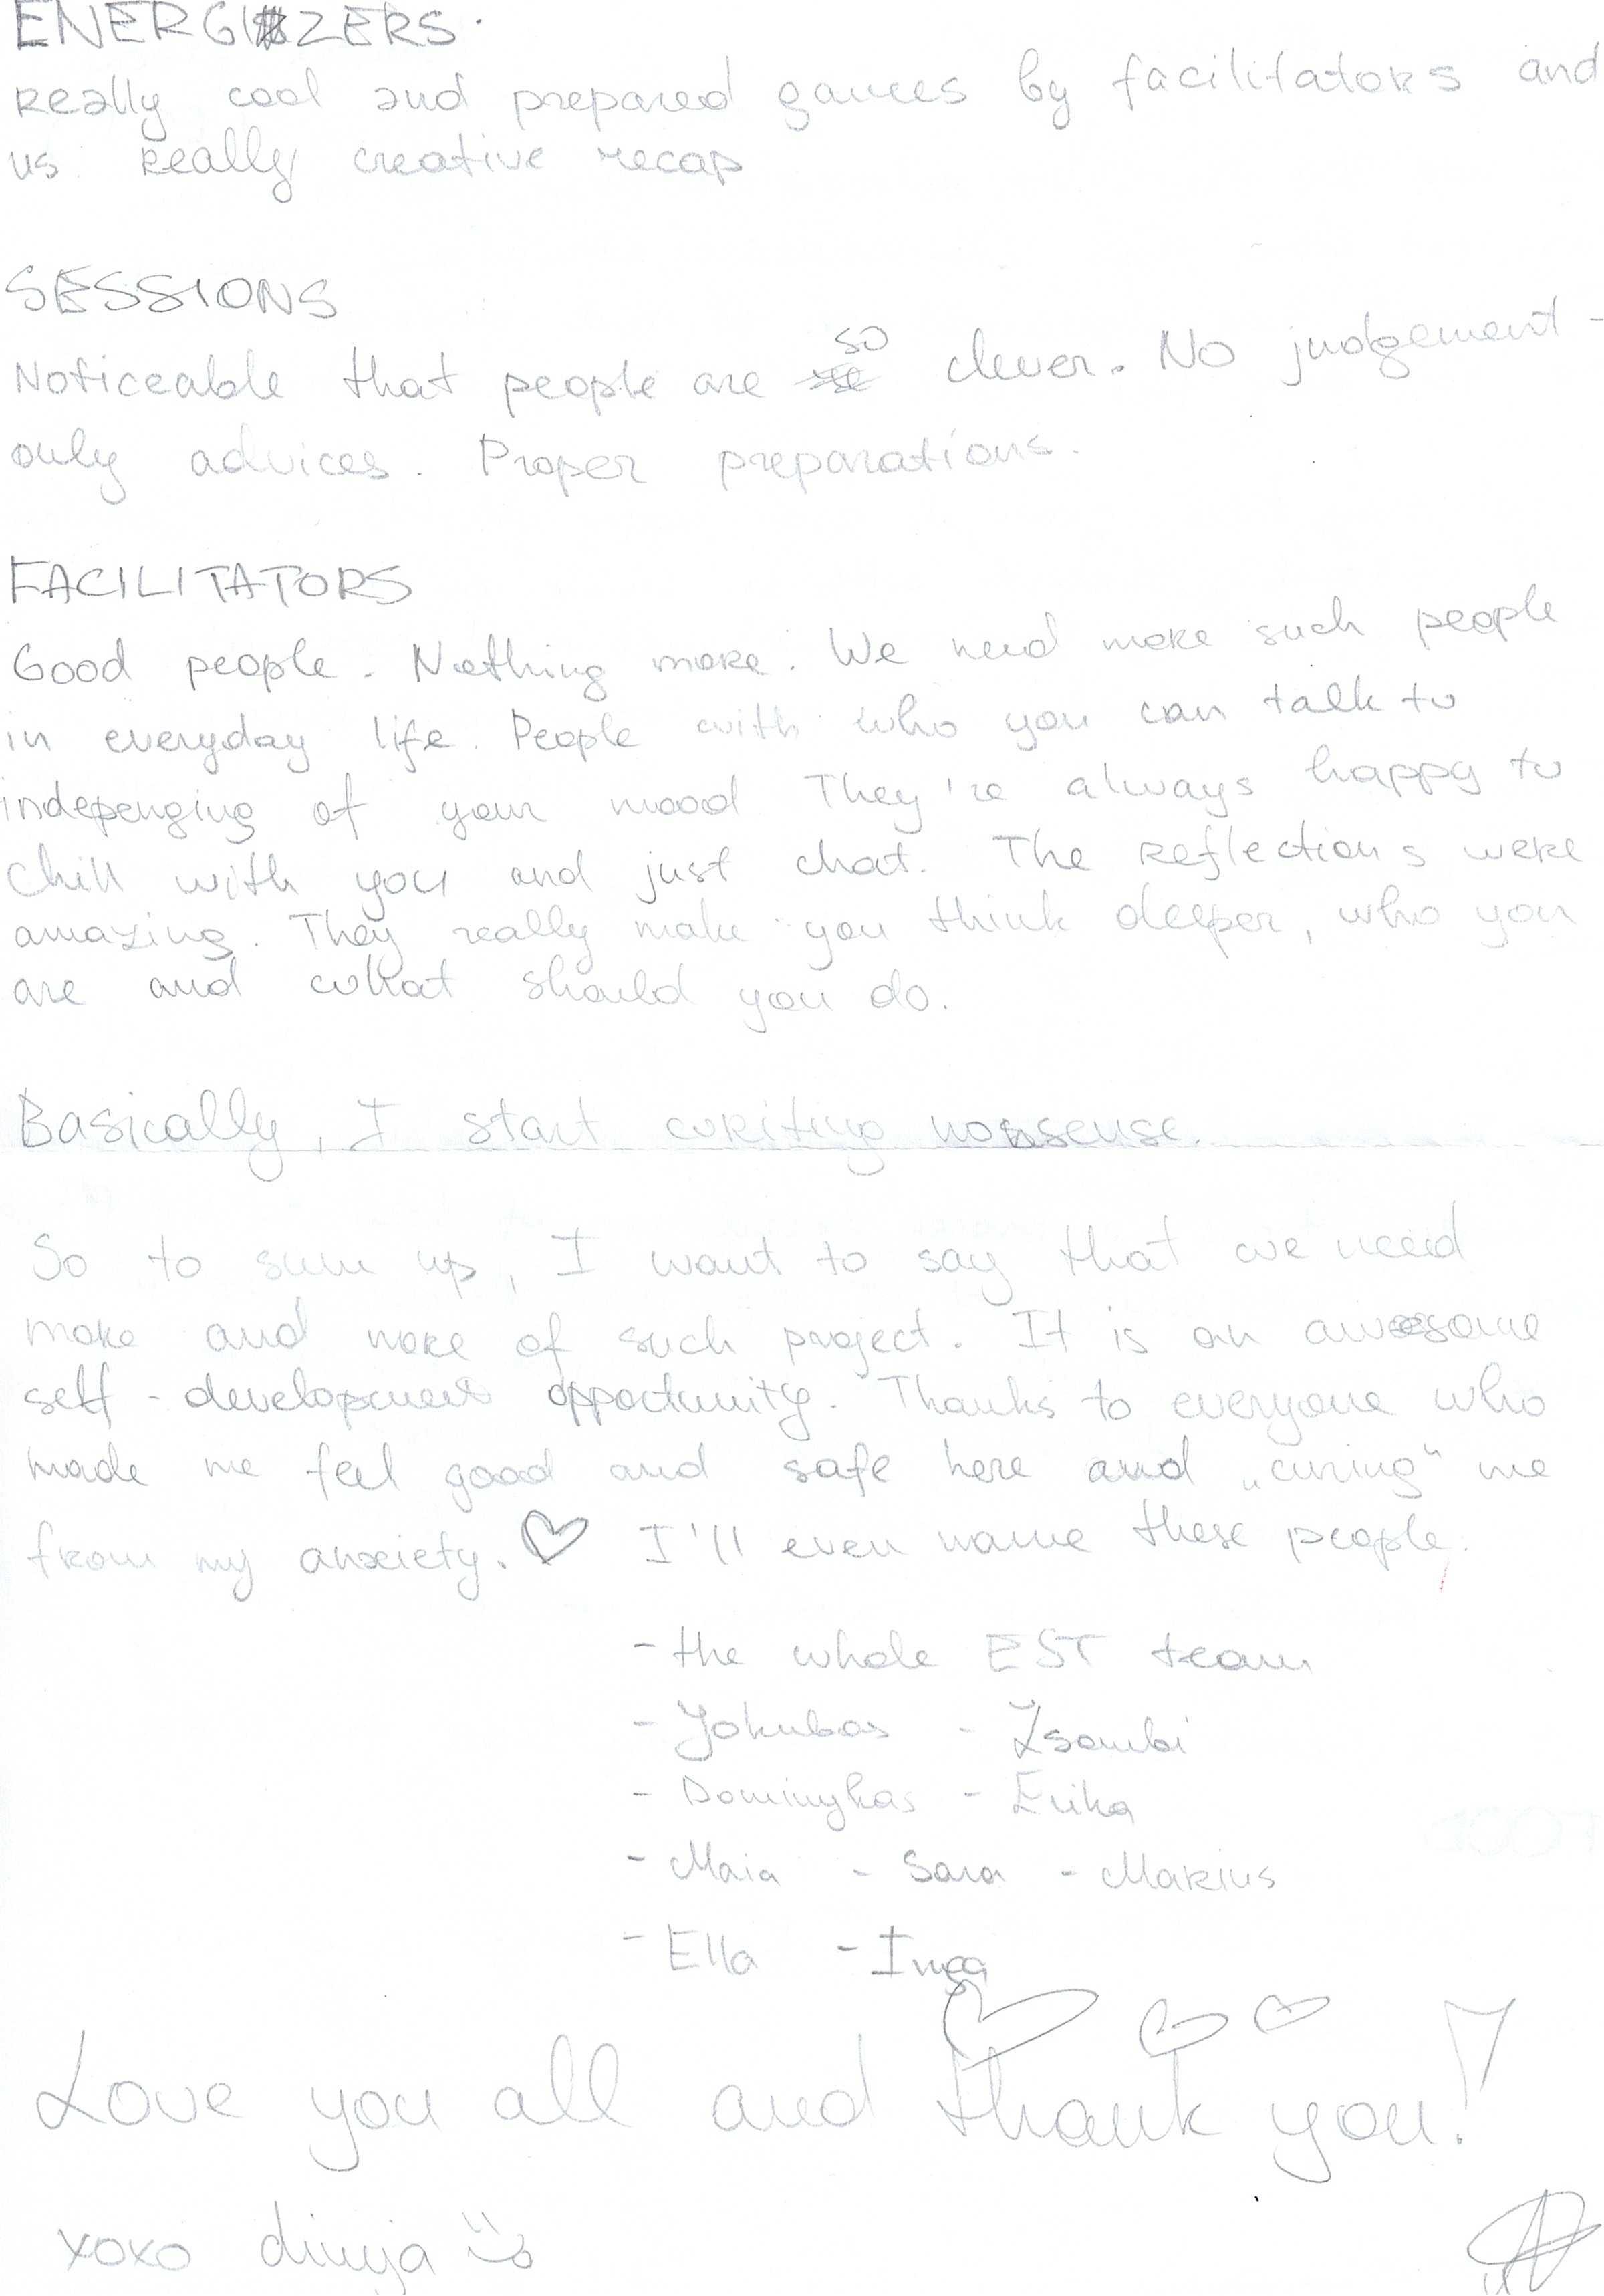 ENERGIZERS.
Really cool and prepared games by facilitators and
us. Really creative recap
SESSIONS
Noticeable that people are so clever. No judgement -
only advices. Proper preparations.
FACILITATORS
Good people. Nothing more. We need more such people
in everyday life. People with who you can talk to
indepenging of your mood They're always happy to
chill with you and just chat. The reflections were
amazing. They really make you think deeper, who you
are and what should you do.
Basically, I start writing nonsense.
So to sum up, I want to say that we need
more and more of such project. It is an awesome
self-development opportunity. Thanks to everyone who
made me feel good and safe here and „curing“ me
from my anxiety. I'll even name these people:
- the whole EST team
- Jokubas - Zsombi
- Dominykas - Erika
- Maia - Sara - Marius
- Ella - Inga
Love you all and thank you!
xoxo